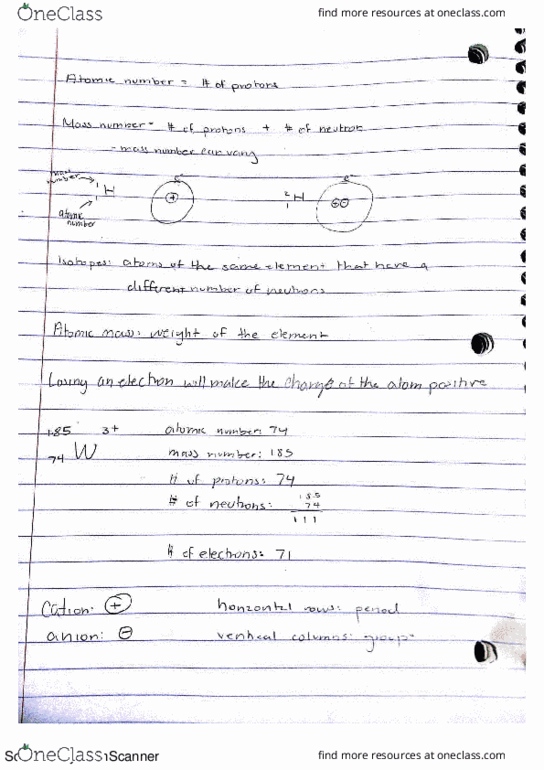 OneClass
find more resources at oneclass.com
Atomic number = # of protons
Mass number = # of protons + # of neutrons
- mass number can vary
mass number
1 1 H
e-
+
atomic number
2 1 H
e-
Isotopes: atoms of the same element that have a
different number of neutrons
Atomic mass: weight of the element
Losing an electron will make the charge of the atom positive
185 3+
74 W
atomic number: 74
mass number: 185
# of protons: 74
# of neutrons: 185
74
111
# of electrons: 71
Cation: +
horizontal rows: period
anion: -
vertical columns: group
OneClass Scanner
find more resources at oneclass.com